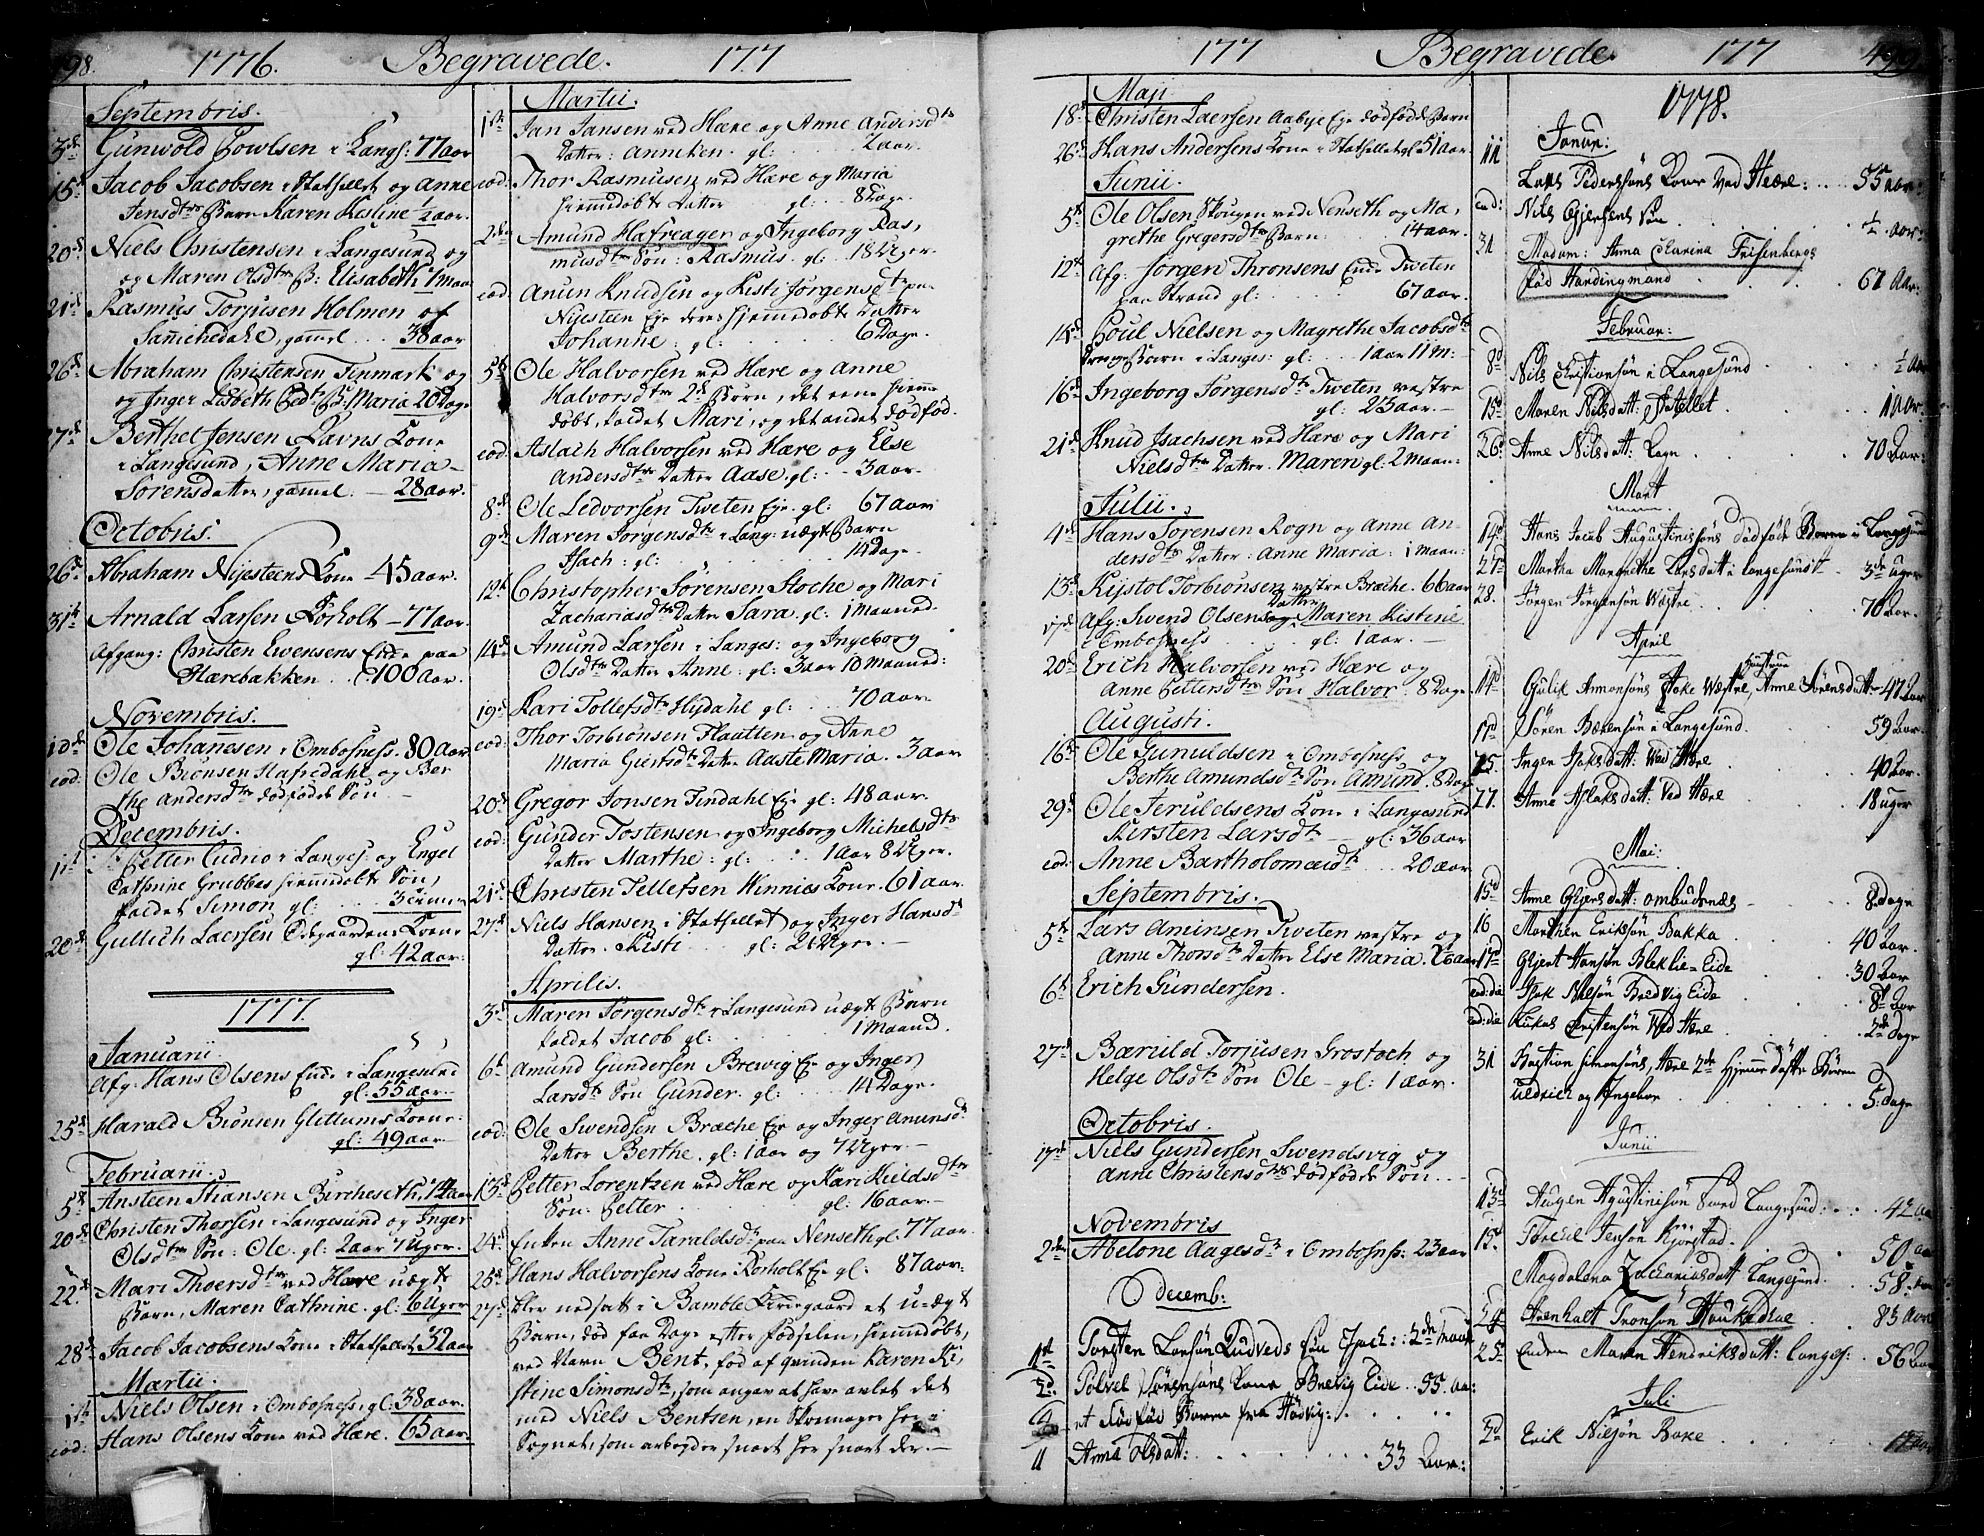 98. 1776. Begravede. 1777
Septembris.
3de Gunwold Powlsen i Langs: 77 aar
15d Jacob Jacobsen i Stathellet og Anne
Jensdtr Barn Karen Kistine ½ aar.
20de Niels Christensen i Langesund og
og Maren Olsdtr B: Elisabeth 1 maa
21d Rasmus Torjusen Holmen af
Sannichedahl, gammel 38 aar
26d Abraham Christensen Finmark og
og Inger Lisbeth B: Maria 20 Dage
27d Berthel Jensen Ravns Kone
i Langesund, Anne Maria
Sørensdatter, gammel. 28 aar.
Octobris.
26d Abraham Nijesteens Kone 45 aar.
31t Arnald Larsen Rørholt 77 aar.
Afgang: Christen Ewensens Enke paa
Hærebakken. 100 aar.
Novembris.
10de Ole Johannesen i Ombosness. 80 aar
eod: Ole Biønsen Hafredahl og Ber
the Andersdtr dødfødde Søn
Decembris.
11t Petter Cudrio i Langes: og Engel
Cathrine Grubbes hiemmedøbte Søn,
kaldet Simon gl: 3
20de Gullich Laersen Odegaardens Kone
gl: 42 aar:
1777.
Januarii.
Afg: Hans Olsens Enke i Langesund
gl: 55 aar.
25d Harald Biønsen Glittums Kone:
gl: 49 aar
Februarii.
5d Ansteen Stiansen Bircheseth. 14 aar
20d Christen Thorsen i Langesund og Inger
Olsdtr Søn: Ole. gl: 2 aar 7 Uger.
22d Mari Thoersdtr ved Hære uægt
Barn, Maren Cathrine. gl: 6 Uger
28d Jacob Jacobsens Kone i Stathellet 32 aar
Martii.
1t Niels Olsen i Ombosness. gl: 38 aar.
eod: Hans Olsens Kone ved Hære. 65 aar.
Martii.
1t Jan Jansen ved Hære og Anne Andersdtr
Datter: Anneken. gl: 2 aar.
eod: Thor Rasmusen ved Hære og Maria
hiemmedøbte Datter gl: 8 Dage.
2de Amund Hafreager og Ingeborg Ras,
musdtr Søn: Rasmus. gl: 18 Uger.
eod: Anun Knudsen og Kisti Jørgensdtr
Nijesteen Eje deres hjemmedøbte Datter
Johanne: gl: 6 Dage.
5t Ole Halvorsen ved Hære og Anne
Halvorsdtr 2de Børn, det eene hieme
døbt, kaldet Mari, og det andet dødfød.
eod: Aslach Halvorsen ved Hære og Else
Andersdtr Datter Aase. gl: 3 aar.
8de Ole Ledvorsen Tweten Eje. gl: 67 aar
9de Maren Jørgensdtr i Lang: uægt Barn
Isach: gl: 14 Dage.
12t Christopher Sørensen Stoche og Mari
Zachariasdtr Datter Sara. gl: 1 Maaned.
14d Amund Larsen i Langes: og Ingeborg
Olsdtr Datter Anne: gl: 3 aar 10 Maaned:
19d Kari Tollefsdtr Hijdahl gl: 70 aar.
eod: Thor Torbiønsen Flaatten og Anne
Maria Giertsdtr Datter Aaste Maria. 3 aar
20d Gregor Jonsen Tindahl Eje gl: 48 aar.
eod: Gunder Tostensen og Ingeborg Michelsdtr
Datter Marthe: gl: 1 aar 8 Uger.
21d Christen Tellefsen Winnies Kone. 61 aar.
27d Niels Hansen i Stathellet og Inger Hansdtr
Datter. Kisti gl: 2 Uger.
Aprilis.
3d Maren Jørgensdtr i Langesund uægt Barn
kaldet Jacob gl: 1 Maaned.
6t Amund Gundersen Brewig Eje og Inger
Larsdtr Søn Gunder. gl: 14 Dage.
eod: Ole Swendsen Bræche Eje og Inger Amunsdtr
Datter Berthe. gl: 1 aar og 7 Uger.
13d Petter Lorentzen ved Hære og Kari Kieldsdtr
Søn: Petter gl: 16 aar.
24d Enken Anne Taraldsdtr paa Nenseth gl. 77 aar.
25d Hans Halvorsens Kone Rørholt Eje gl: 87 aar:
27d blev nedsatt i Bamble Kirkegaard et uægt
Barn, død faa Dage efter fødselen, hiemmedøbt,
ved Navn Bent, fød af qvinden Karen Ki,
stine Simonsdtr, som angav at have avlet det
med Niels Bentsen, en Skomager her i
Sognet, som arbejder snart her snart der.
1777 Begravede. 1777 499
Maji
18d Christen Laersen Aabye Eje dødfødde Barn
26d Hans Andersens Kone i Stathellet gl 51 aar.
Junii.
5t Ole Olsen Skougen ved Nenseth og Ma,
grethe Gregersdtr Barn: 14 aar.
12t Afg: Jørgen Thronsens Enke Tweten
paa Strand gl: 67 aar.
14d Poul Nielsen og Magrethe Jacobsdtr
Drenge Barn i Langes: gl: 1 aar 11 M:
16d Ingeborg Jørgensdtr Tweten vestre
gl: 23 aar.
21d Knud Isachsen ved Hære og Mari
Nielsdtr Datter. Maren gl: 2 Maan:
Julii.
4d Hans Sørensen Rogn og Anne An-
dersdtr Datter: Anne Maria: 1 Maan:
13d Kijstol Torbiønsen vestre Bræche. 66 aar
17d Afg: Swend Olsens Datter Maren Kistine
i Ombosness gl: 1 aar.
20d Erich Halvorsen ved Hære og
Anne Pettersdtr Søn Halvor. 8 Dage
Augusti.
16t Ole Gunuldsen i Ombosness og
Berthe Amundsdtr Søn Amund. 8 Dage
29d Ole Jeruldsens Kone i Langesund
Kirsten Larsdtr gl: 36 aar
eod: Anne Bartholomæidtr 20 aar
Septembris.
5t Lars Amunsen Tweten vestre og
Anne Thorsdtr Datter Else Maria. aar
6t Erich Gundersen.
27d Bæruld Torjusen Grostoch og
Helge Olsdtr Søn Ole gl: 1 aar.
Octobris.
17d Niels Gundersen Swendsvig og
Anne Christensdtr dødfødde Søn.
Novembris
2den Abelone Aagesdtr i Ombosness: 23 aar
Decemb:
1t Torsten Larsøn Ludveds Søn Isach:
2d. Polvel Sørensøns Kone Brevig Eide 55. aar:
et død fød Barn fra Hødvig:
11 Anna Olsdatt: 33 Aar:
1778.
Januar:
11 Lars Pedersøns Kone Ved Hære: 55 aar:
eod: Nils Gjersens Søn ½ aar:
31 Madam: Anna Chatrina Frisenbergs
fød Hardingmand 67 Aar:
Februar:
8d Nils Christiansøn i Langesund ½ aar
15d Maren Nilsdatt: Statellet 1 aar.
26d Anne Nilsdatt: Rogn 70 Aar:
Mart
14d Hans Jacob Augustinssøns dødføde Barn i Langesund
27d Martha Margrethe Larsdatt i Langesundt 3de uger
28. Jørgen Jørgensøn Wæstre 70 Aar.
April
14d Gulik Amonsøns Stoke Wæstre, hustrue Anne Sørensdatt 47 Aar
17d Søren Bærensøn i Langesund. 59 Aar.
25. Inger Isaksdatt: Ved Hære 40 Aar.
27. Anne Aslaksdatt: Ved Hære 18 uger
Mai:
15d Anne Gjersdatt: ombudsnæs 8 dage
16 Marthen Eriksøn Bakka 40 Aar.
17d Gjert Hansøn Bleklie Eide 30 Aar
eod: die Isak Nilsøn Bredvig Eide 8t Aar
eod: die Lukas Christensøn Ved Hære 2de dage
31 Bastian Simonsøns, Hære 2de Hjemme døbte Børn
Uldrich og Ingebor 5: dage
Junii
13d Augen Agustinisøn Langesund: 42 aa
15d. Toreul Jensøn Kjørstad. 50 aa
Magdalena Zachariasdatt Langesund. 58. aar
24 Arenholt Tronsøn Haukedhae 83 aar
25d Enken Maren Hendriksdatt: Langes: 56 Aar
Juli
2d Erik Nilsøn Bake